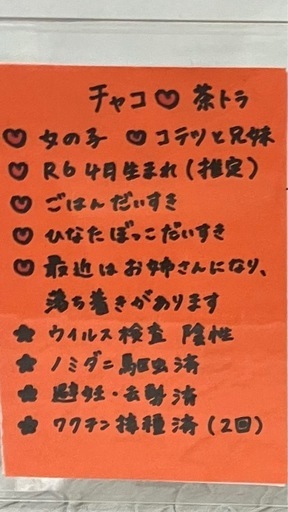 チャコ♥茶トラ
♥女の子 ♥コテツと兄妹
♥R6 4月生まれ(推定)
♥ごはんだいすき
♥ひなたぼっこだいすき
♥最近はお姉さんになり、
落ち着きがあります
★ウイルス検査 陰性
★ノミダニ駆虫済
★避妊・去勢済
★ワクチン接種済(2回)